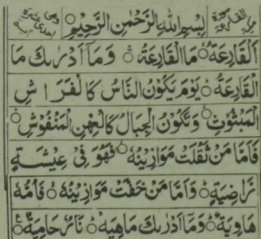 بِسْمِ اللهِ الرَّحْمٰنِ الرَّحِيْمِ
اَلْقَارِعَةُ ۙ مَا الْقَارِعَةُ ۚ وَمَاۤ اَدْرٰىكَ مَا
الْقَارِعَةُ ؕ يَوْمَ يَكُوْنُ النَّاسُ كَالْفَرَاشِ
الْمَبْثُوْثِ ۙ وَتَكُوْنُ الْجِبَالُ كَالْعِهْنِ الْمَنْفُوْشِ ؕ
فَاَمَّا مَنْ ثَقُلَتْ مَوَازِيْنُهٗ ۙ فَهُوَ فِيْ عِيْشَةٍ
رَّاضِيَةٍ ؕ وَاَمَّا مَنْ خَفَّتْ مَوَازِيْنُهٗ ۙ فَاُمُّهٗ
هَاوِيَةٌ ؕ وَمَاۤ اَدْرٰىكَ مَاهِيَهْ ؕ نَارٌ حَامِيَةٌ